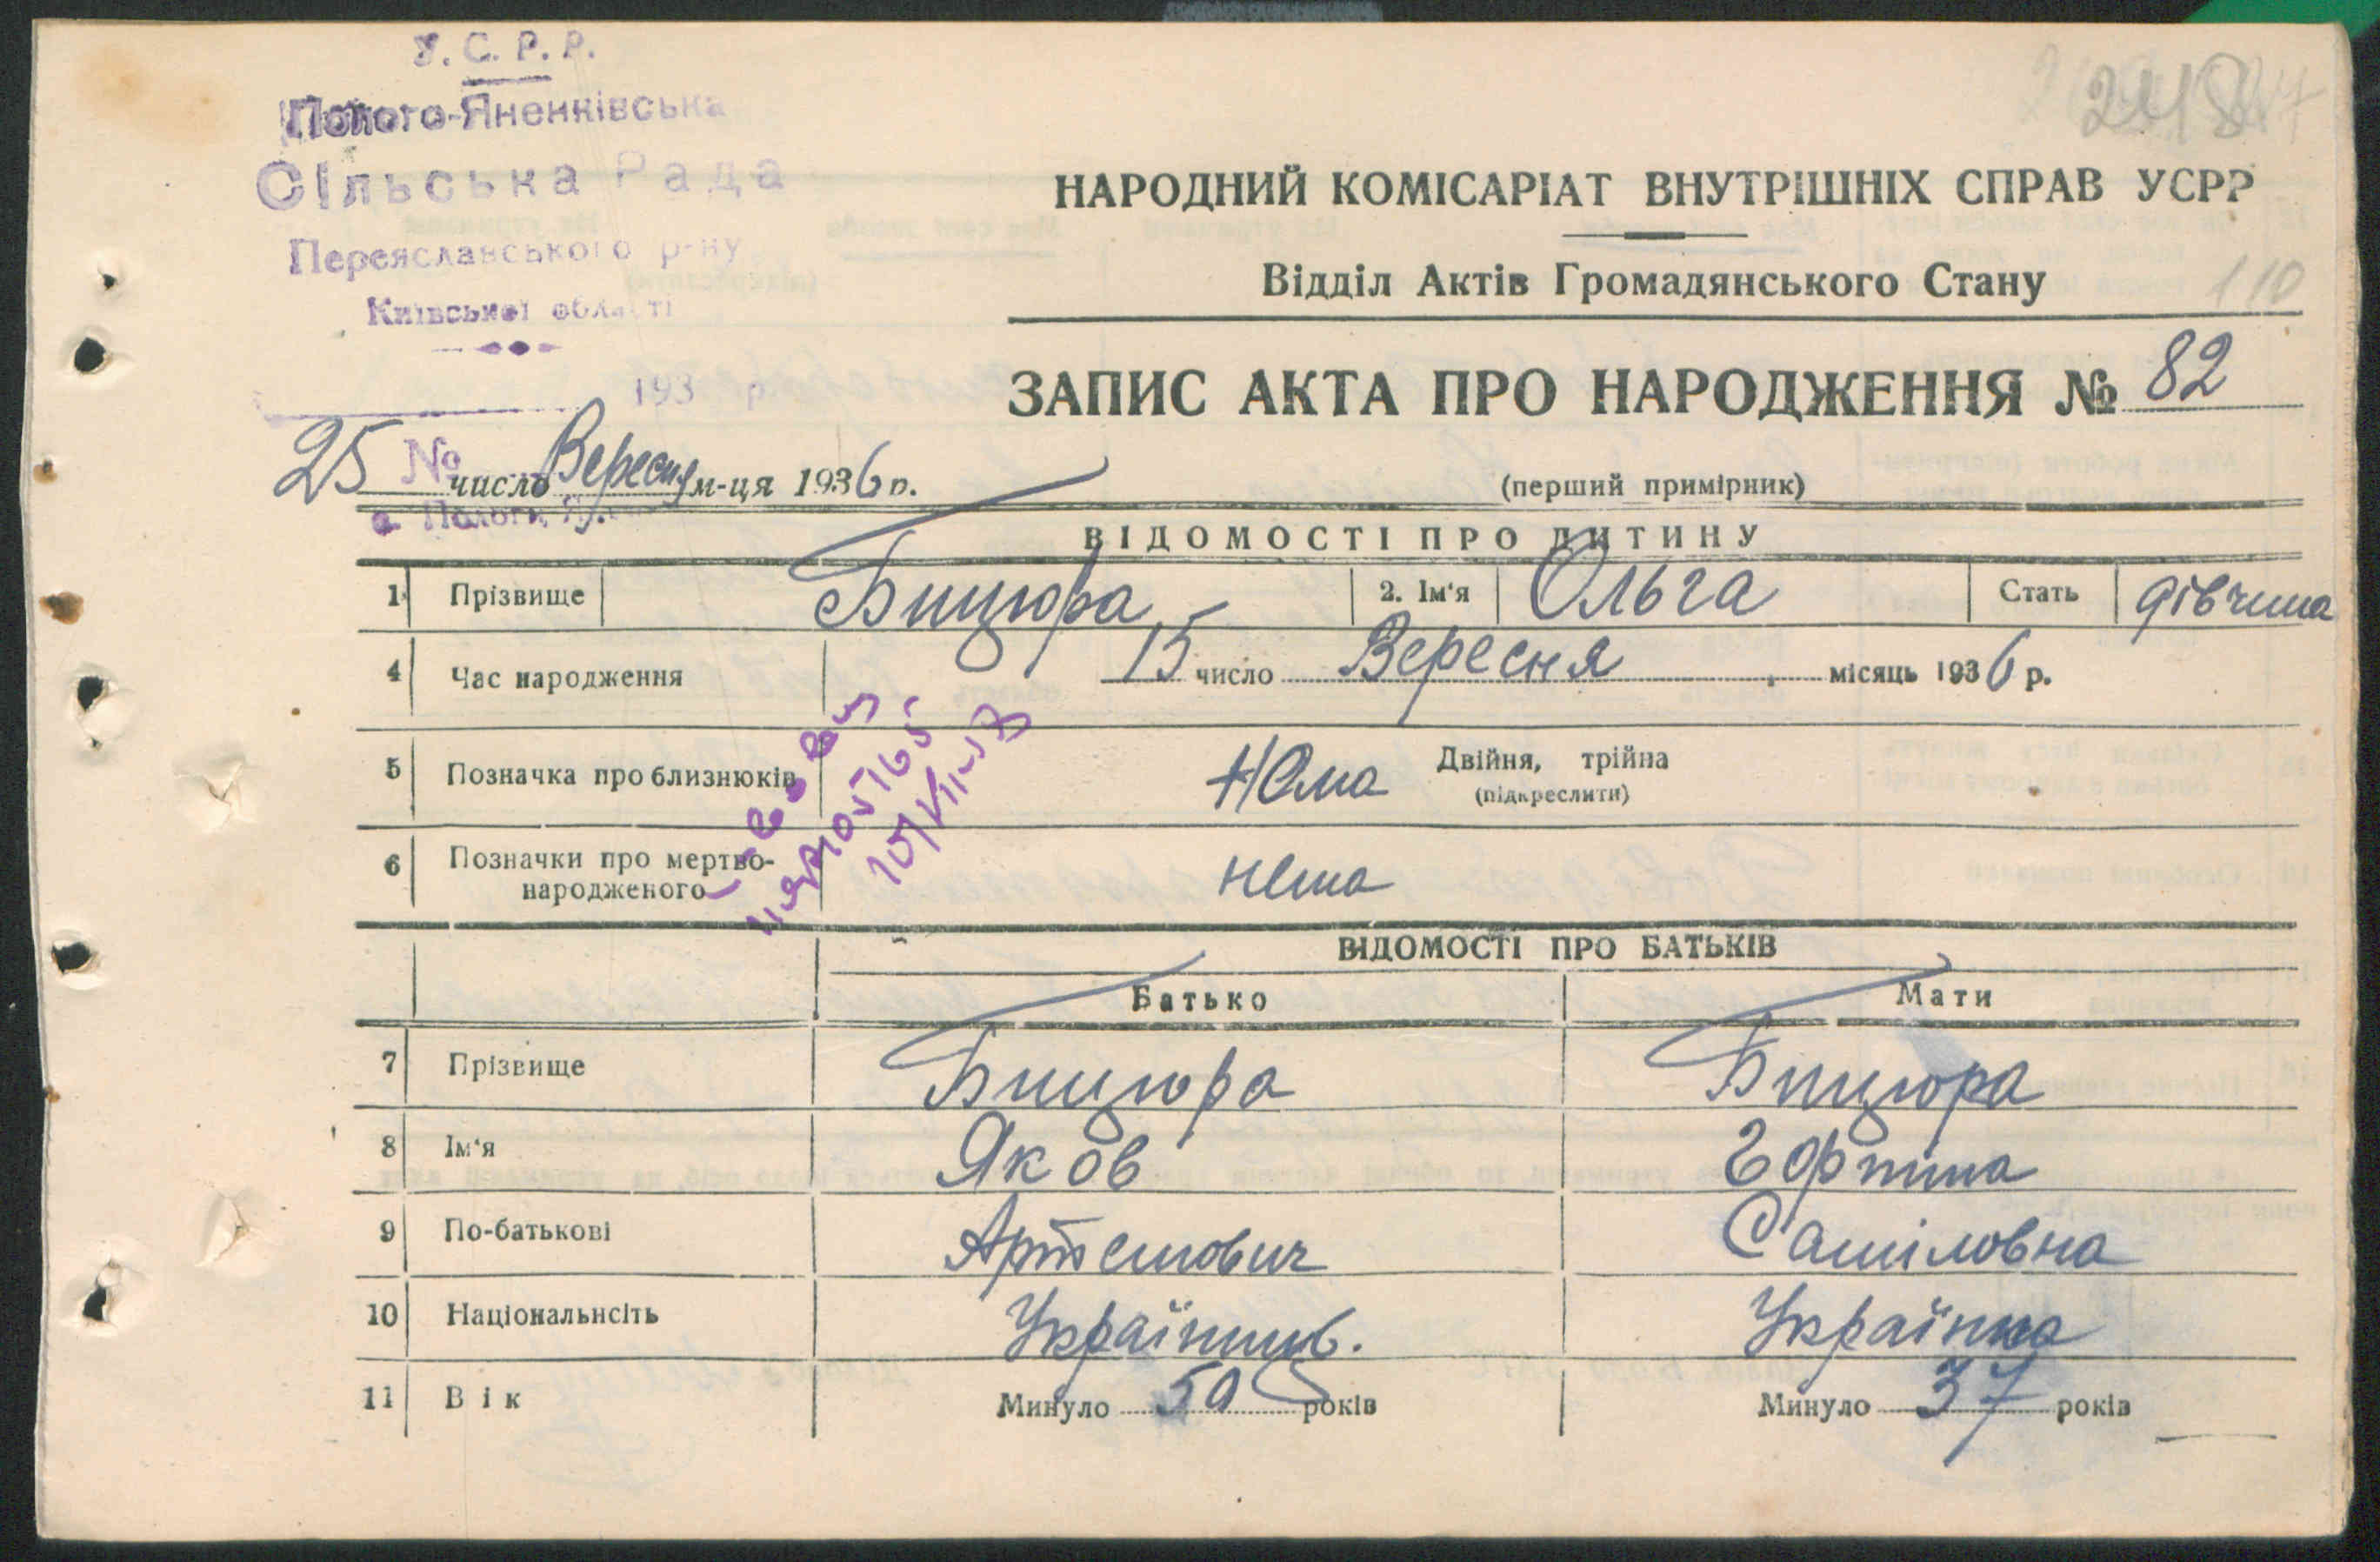 У.С.Р.Р.
Полого-Яненківська
Сільська Рада
Переяславського р-ну
Київської області
193 р.
№
с. Пологи
248
110
НАРОДНИЙ КОМІСАРІАТ ВНУТРІШНІХ СПРАВ УСРР
Відділ Актів Громадянського Стану
ЗАПИС АКТА ПРО НАРОДЖЕННЯ № 82
25 число Вересня м-ця 1936 р.
(перший примірник)
ВІДОМОСТІ ПРО ДИТИНУ
1 Прізвище Бицюра 2. Ім'я Ольга Стать дівчина
4 Час народження 15 число Вересня місяць 1936 р.
5 Позначка про близнюків Нема Двійня, трійна
(підкреслити)
6 Позначки про мертво-
народженого нема
ВІДОМОСТІ ПРО БАТЬКІВ
Батько Мати
7 Прізвище Бицюра Бицюра
8 Ім'я Яков Горпина
9 По-батькові Артемович Саміловна
10 Національнсіть Українець. Українка
11 Вік Минуло 50 років Минуло 37 років